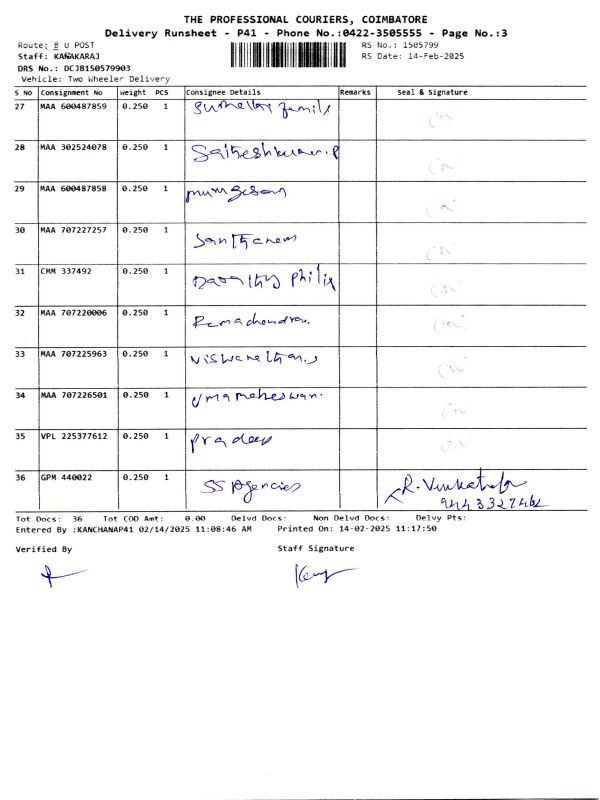 THE PROFESSIONAL COURIERS, COIMBATORE
Delivery Runsheet - P41 - Phone No.:0422-3505555 - Page No.:3
Route: B U POST RS No.: 1505799
Staff: KANAKARAJ RS Date: 14-Feb-2025
DRS No.: DCJB150579903
Vehicle: Two Wheeler Delivery
S No Consignment No Weight PCS Consignee Details Remarks Seal & Signature
27 MAA 600487859 0.250 1 family
28 MAA 302524078 0.250 1
29 MAA 600487858 0.250 1 murugesan
30 MAA 707227257 0.250 1 Santhanam
31 CMM 337492 0.250 1 Philip
32 MAA 707220006 0.250 1 Ramachandran.
33 MAA 707225963 0.250 1 Viswanathan.s
34 MAA 707226501 0.250 1 Umamaheswari.
35 VPL 225377612 0.250 1 Pradeep
36 GPM 440022 0.250 1 SS Agencies R.
Tot Docs: 36 Tot COD Amt: 0.00 Delvd Docs: Non Delvd Docs: Delvy Pts:
Entered By :KANCHANAP41 02/14/2025 11:08:46 AM Printed On: 14-02-2025 11:17:50
Verified By Staff Signature